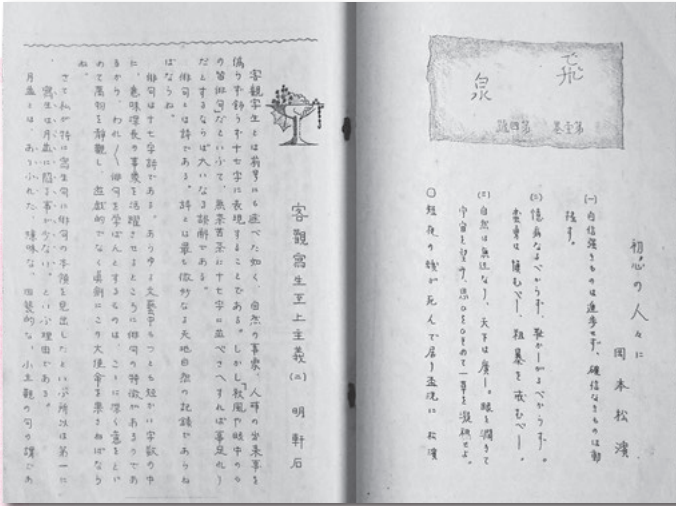 飛
泉
第壹巻 第四號
初心の人々に
岡本松濱
(一) 自信強きものは進歩せず、確信なきものは動
揺す。
(二) 憶病なるべからず、
蛮勇は慎むべし、粗暴を戒むべし。
(三) 自然は無辺なり、天下は廣し。眼を濶うて
宇宙を望み、思ひをひそめて一草を凝視せよ。
○ 短夜の蛾が死んで居り盃洗に 松濱
客觀寫生至上主義(二) 明軒石
客觀寫生とは前号にも述べた如く、自然の事象、人生の出来事を
偽らず飾らず十七字に表現することである。しかし「秋風や眼中のも
の皆俳句」だといふて、無茶苦茶に十七字に並べさへすれば事足れり
だとするならば大いなる誤解である。
俳句とは詩である。詩とは最も微妙なる天地自然の記録であらね
ばならぬ。
俳句は十七字詩である。あらゆる文藝中もつとも短かい字数の中
に、意味深長の事象を活躍させるところに俳句の特徴があるのであ
るから、われ〱俳句を学ばんとするものは、ことに深く意をとい
めて萬物を静觀し、遊戯的でなく真剣にこの大使命を果さねばなら
ぬ。
さて私が特に寫生句に俳句の本領を見出したといふ所以は第一に
寫生は月並に陥る事が少ない。といふ理由である。
月並とは、ありふれた、曖昧な、旧装的な、小主觀の句の謂であ